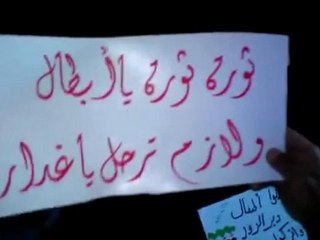 ثورة ثورة يا أبطال
ولازم ترحل يا غدار
دير الزور